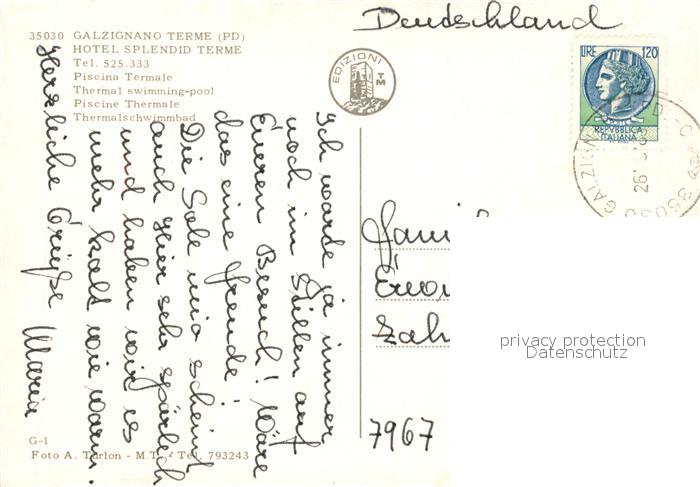 35030 GALZIGNANO TERME (PD)
HOTEL SPLENDID TERME
Tel. 525.333
Piscina Termale
Thermal swimming-pool
Piscine Thermale
Thermalschwimmbad
EDIZIONI
TM
Deutschland
LIRE 120
REPVBBLICA
ITALIANA
Ich warte ja immer
noch im Stillen auf
Eueren Besuch! Wäre
das eine Freude!
Die Sole mio scheint
auch hier sehr spärlich
und haben wir es
mehr kalt wie warm.
Herzliche Grüße Maria
Fami
Zah
7967
privacy protection
Datenschutz
G-1
Foto A. Turlon - M.T. - Tel. 793243